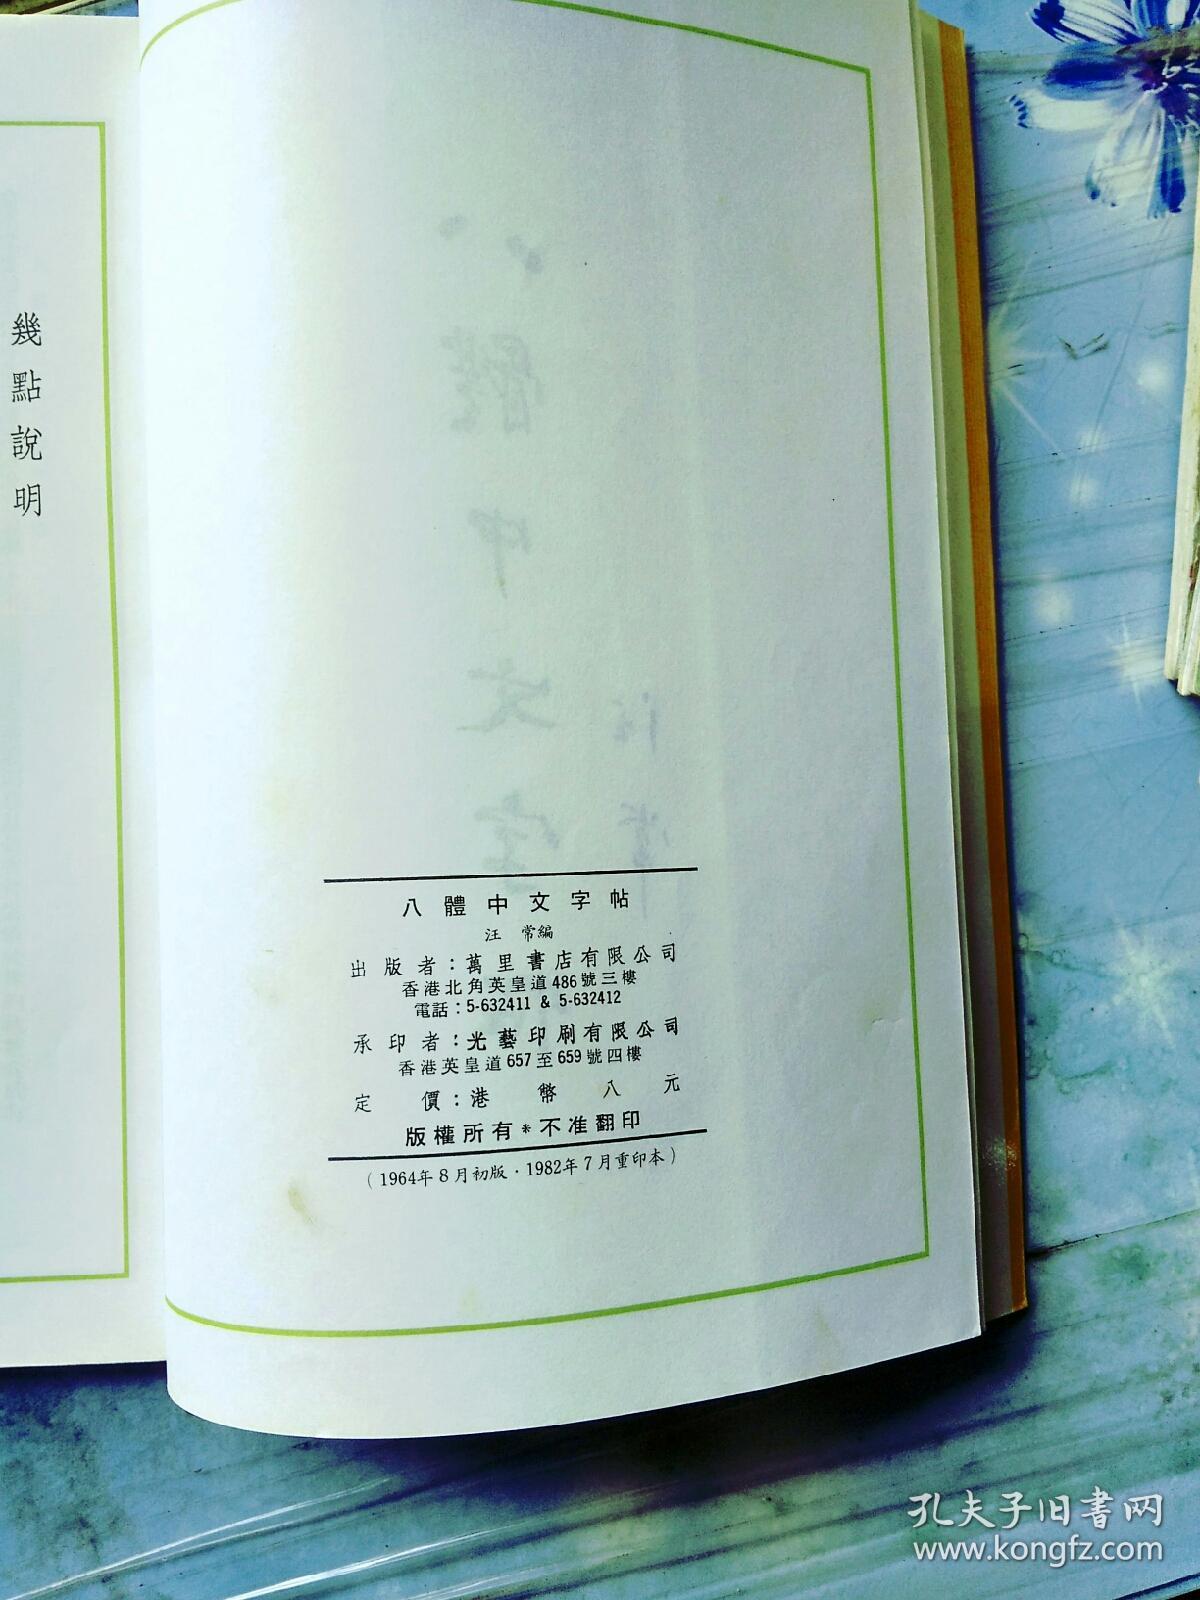 幾點說明
八體中文字帖
汪 常編
出版者：萬里書店有限公司
香港北角英皇道486號三樓
電話：5-632411 & 5-632412
承印者：光藝印刷有限公司
香港英皇道657至659號四樓
定價：港幣八元
版權所有＊不准翻印
（1964年8月初版·1982年7月重印本）
孔夫子旧书网
www.kongfz.com